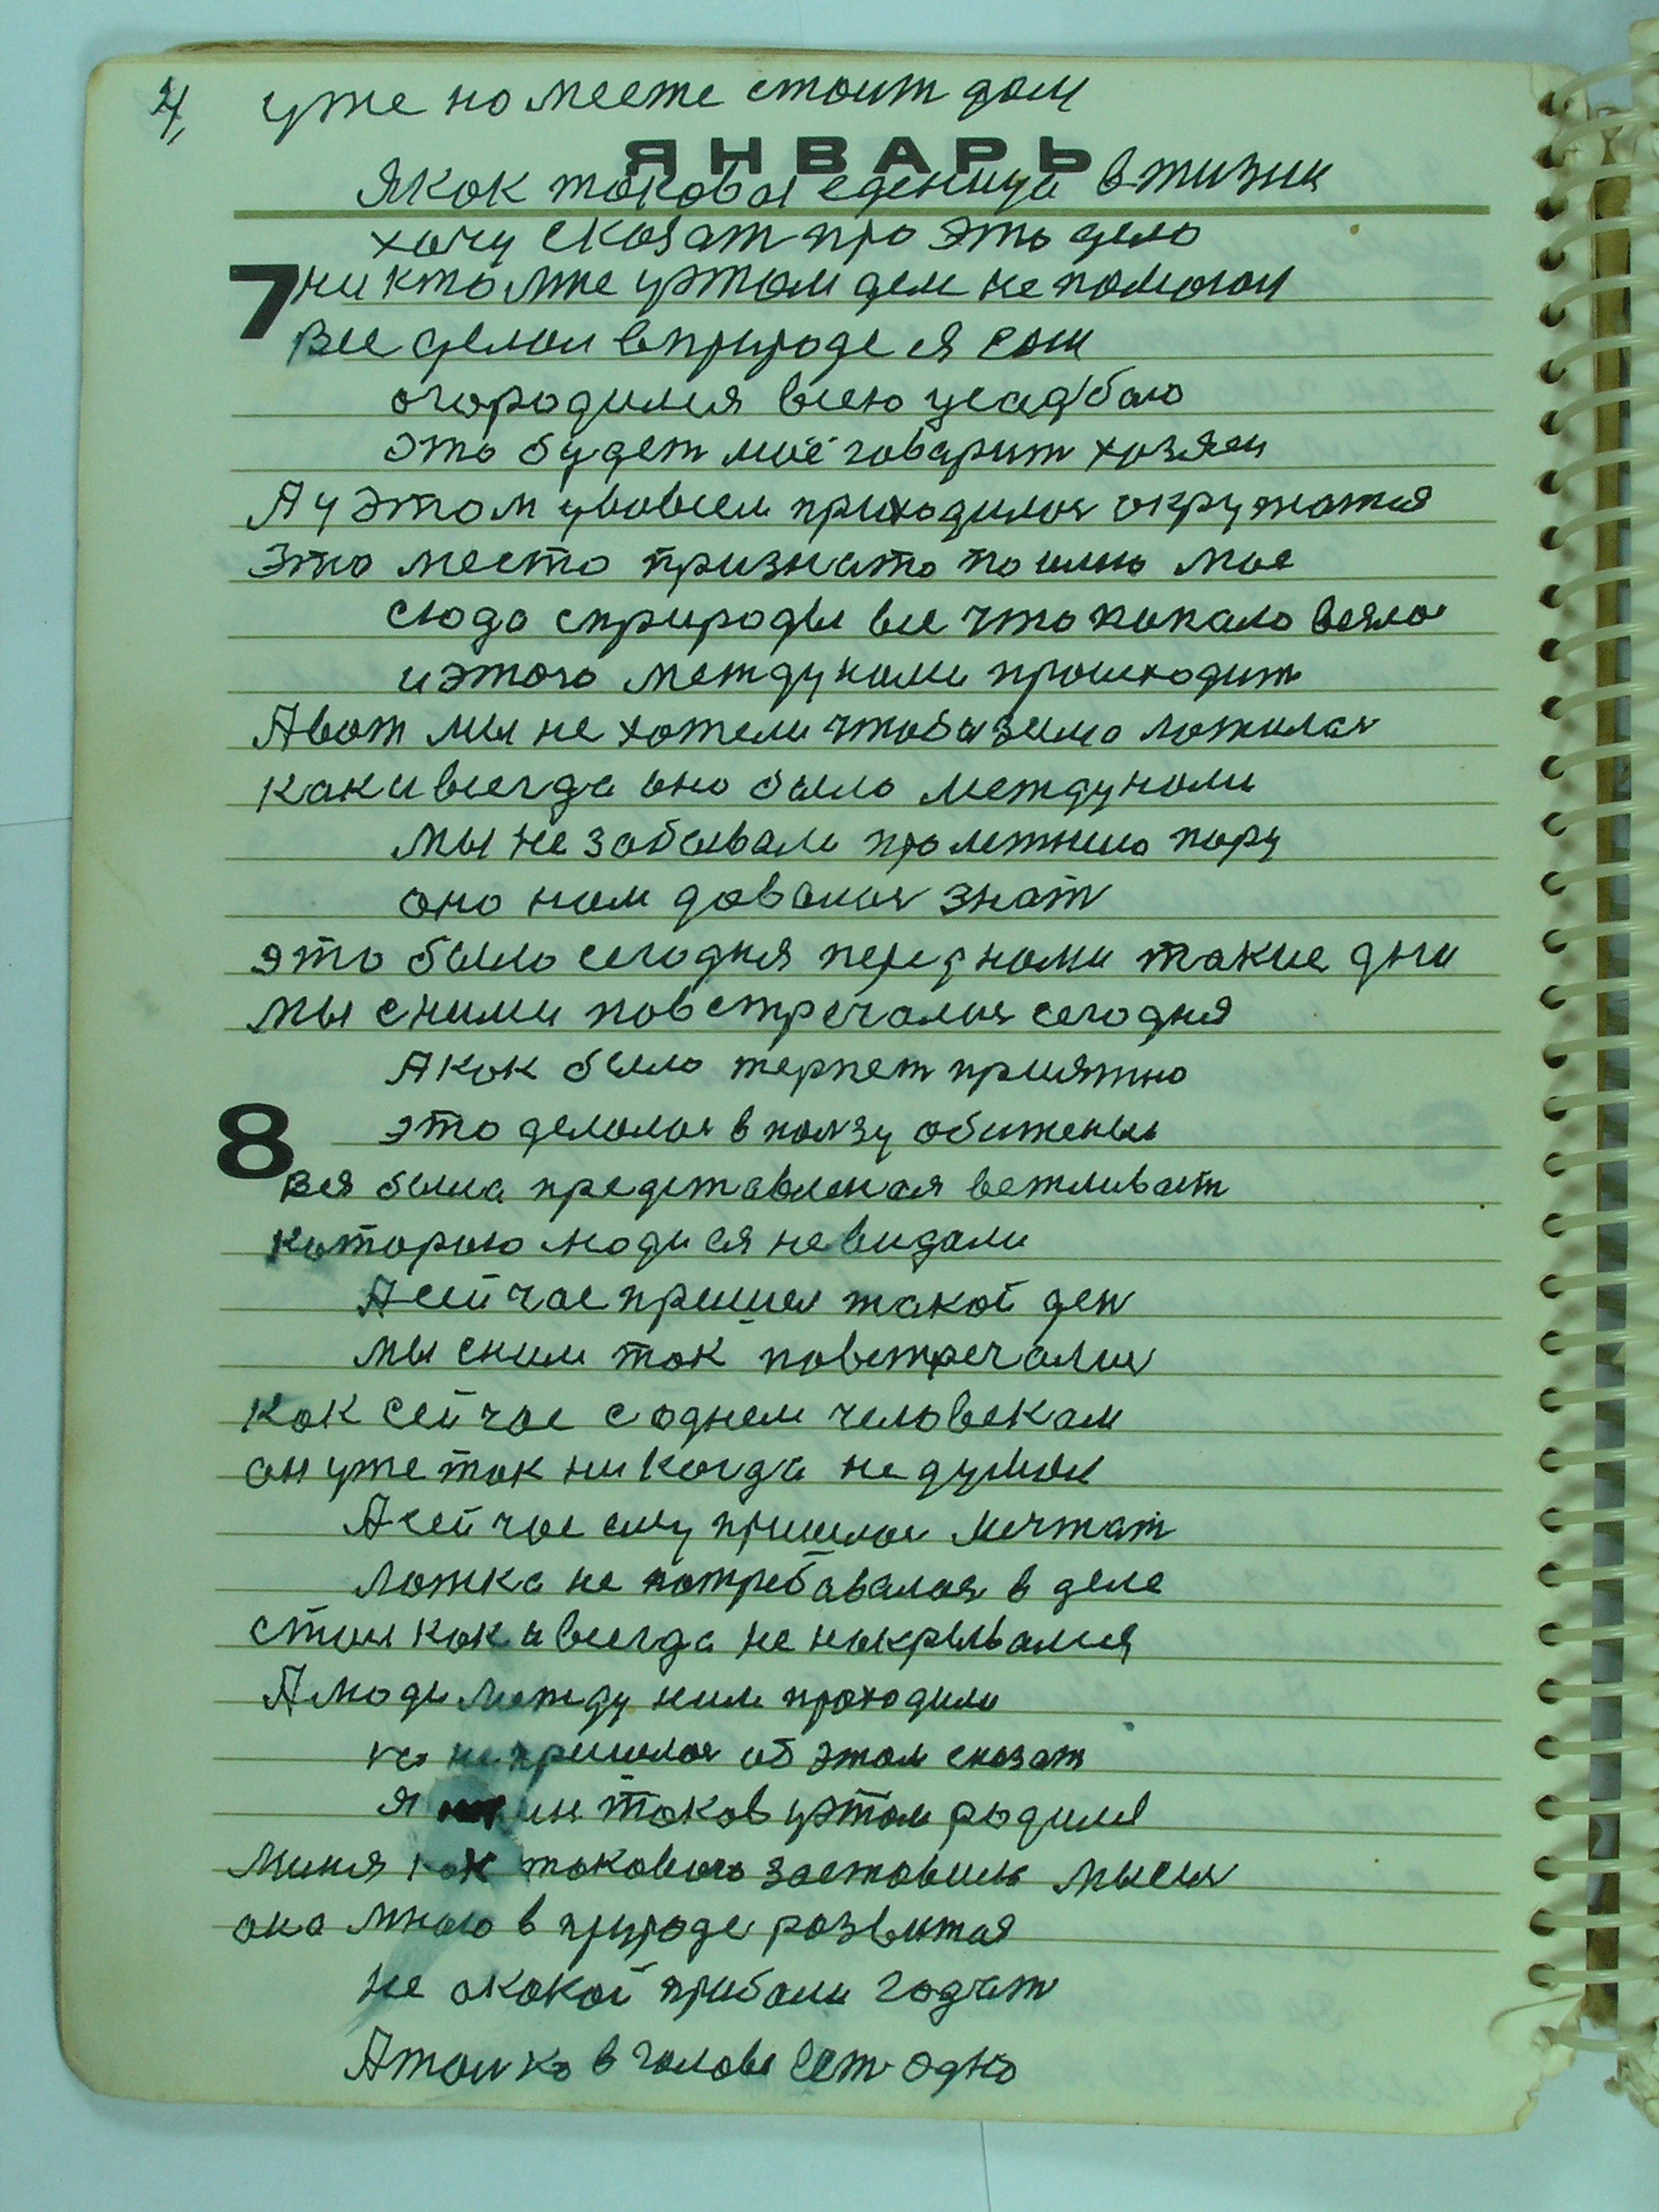 4, уже на месте стоит дом
ЯНВАРЬ
Я как таковая еденица в жизни
хочу сказат про это дело
7 никто мне уэтом деле не помогал
все делал вприроде я сам
огородился всею усадбаю
это будет моё говарит хозяен
А у этом увовсем приходился окружатся
Это место признато по имю мое
сюда сприроды все что попало взяло
и этого между нами происходит
А вот мы не хотели чтобы зима ложилас
как и всегда она было между нами
мы не забывали про летнию пору
оно нам давалос знат
это было сегодня перед нами такие дни
мы сними повстречалис сегодня
А как было терпет приятно
8 это делалос в ползу обиженых
вся была представленая вежливаст
которою люди ся не видали
А сейчас пришел такой ден
мы сним так повстречалис
как сейчас с однем человекам
он уже так никогда не думал
А сейчас ему пришлос мечтат
ложка не потребавалас в деле
стол как и всегда не накрывался
А люди между ним проходили
не пришлос об этом сказат
я таков уэтом родился
миня как таковога заставила мысля
она мною в природе развитая
не акакой прибали гадат
А толко в голове ест одно